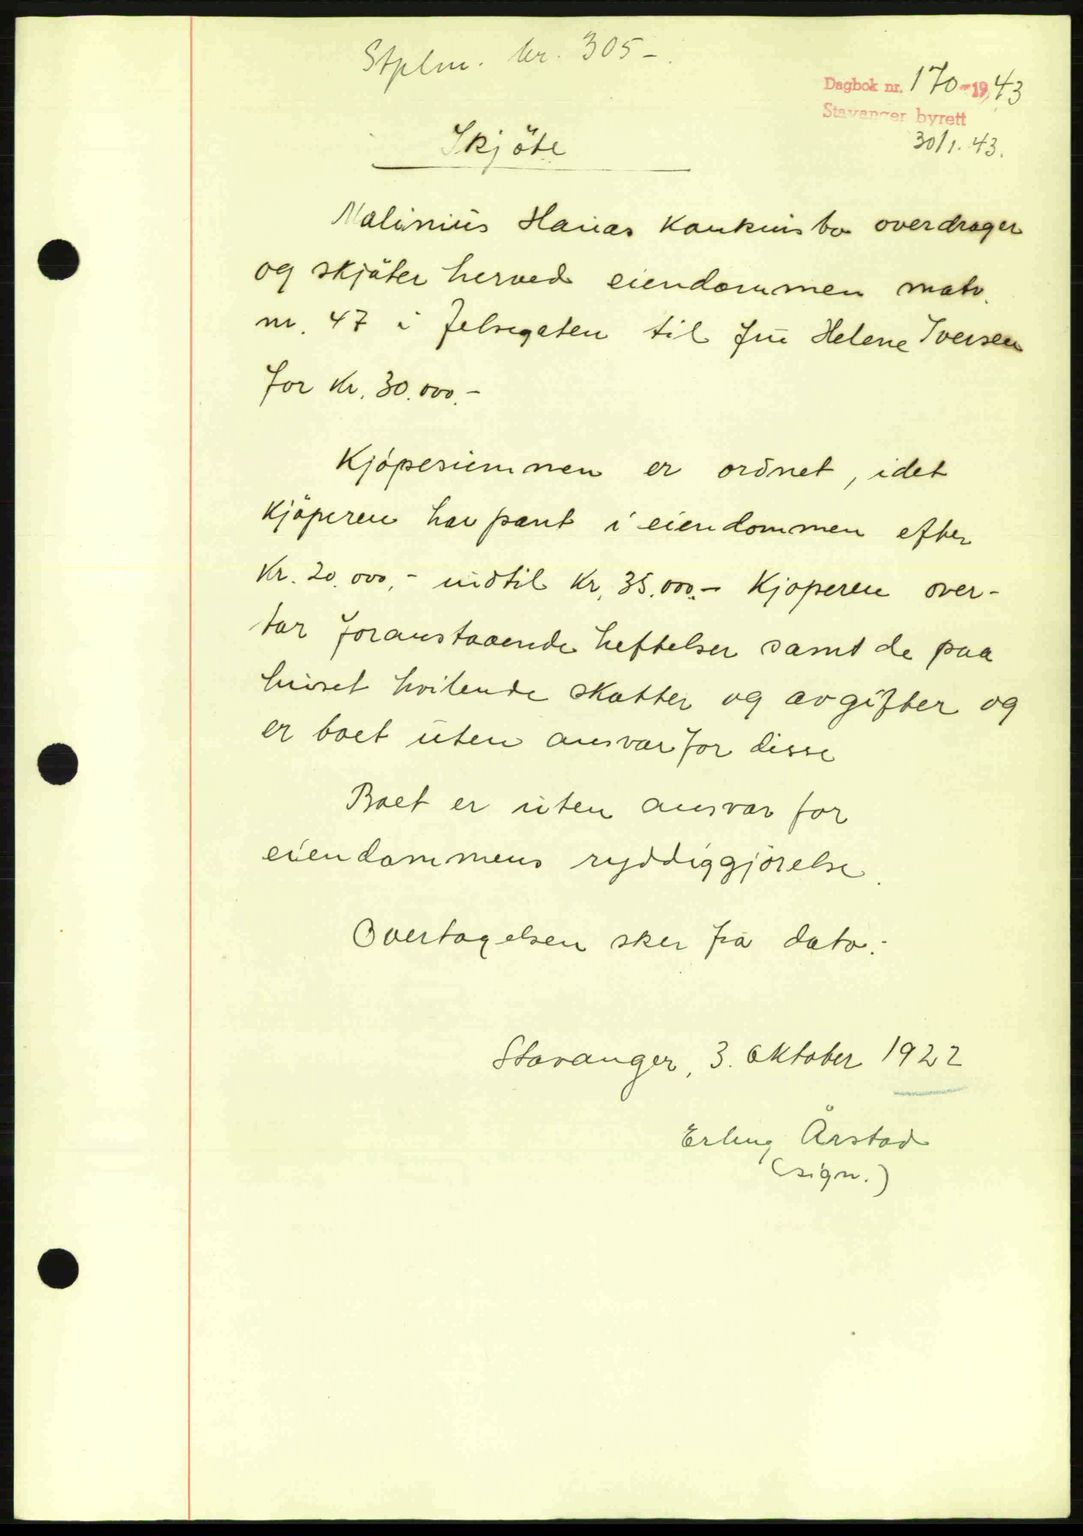 Stplm. kr. 305-.
Dagbok nr. 170-1943
Stavanger byrett
30/1. 43.
Skjöte
Malinius Hanas Konkursbo overdrager
og skjöter herved eiendommen matr.
nr. 47 i Jelsegaten til fru Helene Iversen
for Kr. 30.000.-
Kjöpesummen er ordnet, idet
Kjöperen har pant i eiendommen efter
Kr. 20.000,- indtil Kr. 35.000.- Kjøperen over-
tar foranstaaende heftelser samt de paa
huset hvilende skatter og avgifter og
er boet uten ansvar for disse
Boet er uten ansvar for
eiendommens ryddiggjörelse.
Overtagelsen sker fra dato.-
Stavanger, 3. Oktober 1922
Erling Årstad
(sign.)